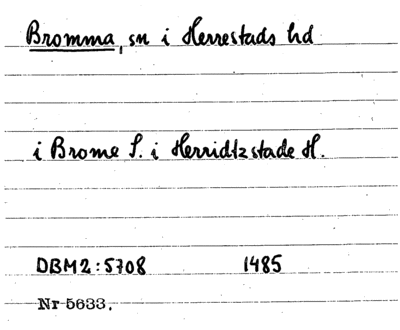 Bromma, sn i Herrestads hd
i Brome S. i Herridtzstade H.
DBM2:5708 1485
Nr 5633.